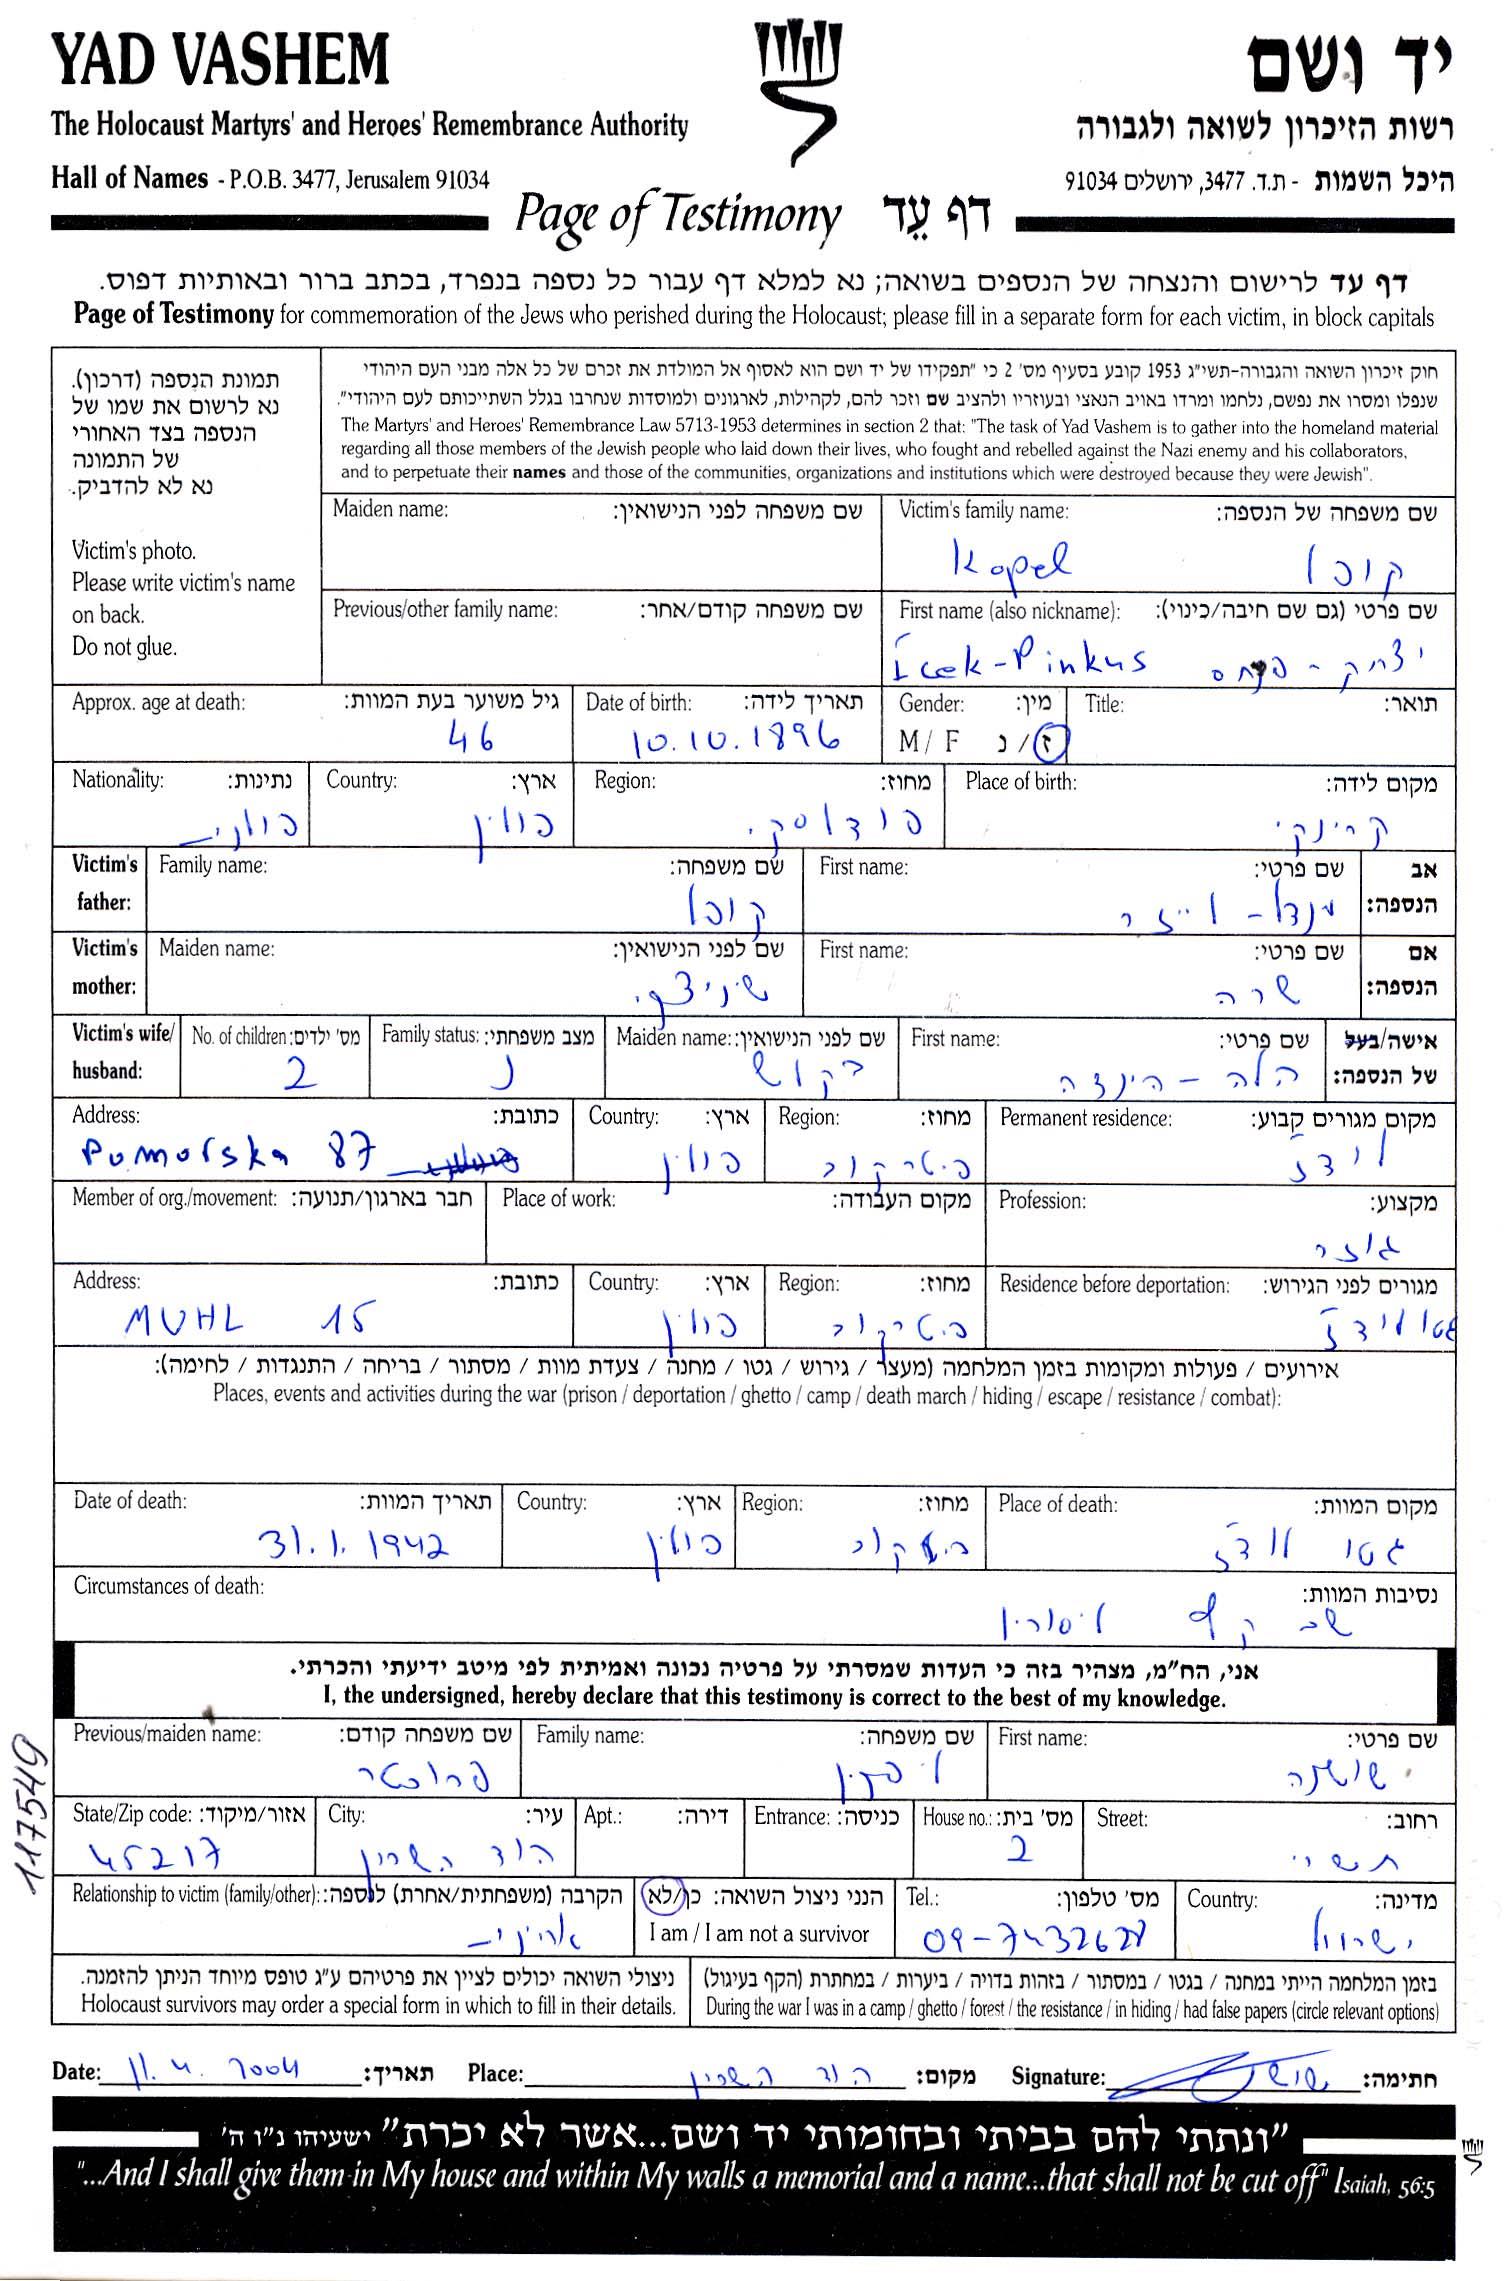 YAD VASHEM
יד ושם
The Holocaust Martyrs' and Heroes' Remembrance Authority
רשות הזיכרון לשואה ולגבורה
Hall of Names - P.O.B. 3477, Jerusalem 91034
היכל השמות - ת.ד. 3477, ירושלים 91034
Page of Testimony דף עֵד
דף עד לרישום והנצחה של הנספים בשואה; נא למלא דף עבור כל נספה בנפרד, בכתב ברור ובאותיות דפוס.
Page of Testimony for commemoration of the Jews who perished during the Holocaust; please fill in a separate form for each victim, in block capitals
תמונת הנספה (דרכון).
נא לרשום את שמו של
הנספה בצד האחורי
של התמונה
נא לא להדביק.
Victim's photo.
Please write victim's name
on back.
Do not glue.
חוק זיכרון השואה והגבורה-תשי"ג 1953 קובע בסעיף מס' 2 כי "תפקידו של יד ושם הוא לאסוף אל המולדת את זכרם של כל אלה מבני העם היהודי
שנפלו ומסרו את נפשם, נלחמו ומרדו באויב הנאצי ובעוזריו ולהציב שם וזכר להם, לקהילות, לארגונים ולמוסדות שנחרבו בגלל השתייכותם לעם היהודי".
The Martyrs' and Heroes' Remembrance Law 5713-1953 determines in section 2 that: "The task of Yad Vashem is to gather into the homeland material
regarding all those members of the Jewish people who laid down their lives, who fought and rebelled against the Nazi enemy and his collaborators,
and to perpetuate their names and those of the communities, organizations and institutions which were destroyed because they were Jewish".
Victim's family name: שם משפחה של הנספה:
Kopel קופל
Maiden name: שם משפחה לפני הנישואין:
First name (also nickname): שם פרטי (גם שם חיבה/כינוי):
Icek-Pinkus יצחק-פנחס
Previous/other family name: שם משפחה קודם/אחר:
Title: תואר:
Gender: מין:
M / F ז / נ
Date of birth: תאריך לידה:
10.10.1896
Approx. age at death: גיל משוער בעת המוות:
46
Place of birth: מקום לידה:
קרינקי
Region: מחוז:
Country: ארץ:
פולין
Nationality: נתינות:
פולנית
Victim's father: אב הנספה:
First name: שם פרטי:
מנדל-לייזר
Family name: שם משפחה:
קופל
Victim's mother: אם הנספה:
First name: שם פרטי:
שרה
Maiden name: שם לפני הנישואין:
Victim's wife/ husband: אישה/בעל של הנספה:
First name: שם פרטי:
הלה-הינדה
Maiden name: שם לפני הנישואין:
Family status: מצב משפחתי:
נ
No. of children: מס' ילדים:
2
Permanent residence: מקום מגורים קבוע:
לודז
Region: מחוז:
פיטרקוב
Country: ארץ:
פולין
Address: כתובת:
Pomorska 87
Profession: מקצוע:
גוזר
Place of work: מקום העבודה:
Member of org./movement: חבר בארגון/תנועה:
Residence before deportation: מגורים לפני הגירוש:
גטו לודז
Region: מחוז:
פיטרקוב
Country: ארץ:
פולין
Address: כתובת:
MUHL 15
אירועים / פעולות ומקומות בזמן המלחמה (מעצר / גירוש / גטו / מחנה / צעדת מוות / מסתור / בריחה / התנגדות / לחימה):
Places, events and activities during the war (prison / deportation / ghetto / camp / death march / hiding / escape / resistance / combat):
Place of death: מקום המוות:
גטו לודז
Region: מחוז:
Country: ארץ:
פולין
Date of death: תאריך המוות:
31.1.1942
Circumstances of death: נסיבות המוות:
אני, הח"מ, מצהיר בזה כי העדות שמסרתי על פרטיה נכונה ואמיתית לפי מיטב ידיעתי והכרתי.
I, the undersigned, hereby declare that this testimony is correct to the best of my knowledge.
First name: שם פרטי:
שושנה
Family name: שם משפחה:
Previous/maiden name: שם משפחה קודם:
Street: רחוב:
תשרי
House no.: מס' בית:
2
Entrance: כניסה:
Apt.: דירה:
City: עיר:
הוד השרון
State/Zip code: אזור/מיקוד:
45217
Country: מדינה:
ישראל
Tel.: מס' טלפון:
הנני ניצול השואה: כן/לא
I am / I am not a survivor
Relationship to victim (family/other): הקרבה (משפחתית/אחרת) לנספה:
בזמן המלחמה הייתי במחנה / בגטו / במסתור / בזהות בדויה / ביערות / במחתרת (הקף בעיגול)
During the war I was in a camp / ghetto / forest / the resistance / in hiding / had false papers (circle relevant options)
ניצולי השואה יכולים לציין את פרטיהם ע"ג טופס מיוחד הניתן להזמנה.
Holocaust survivors may order a special form in which to fill in their details.
Date: 11.4.2004 תאריך: Place: הוד השרון מקום: Signature: חתימה:
"ונתתי להם בביתי ובחומותי יד ושם...אשר לא יכרת" ישעיהו נ"ו ה'
"...And I shall give them in My house and within My walls a memorial and a name...that shall not be cut off" Isaiah, 56:5
117549